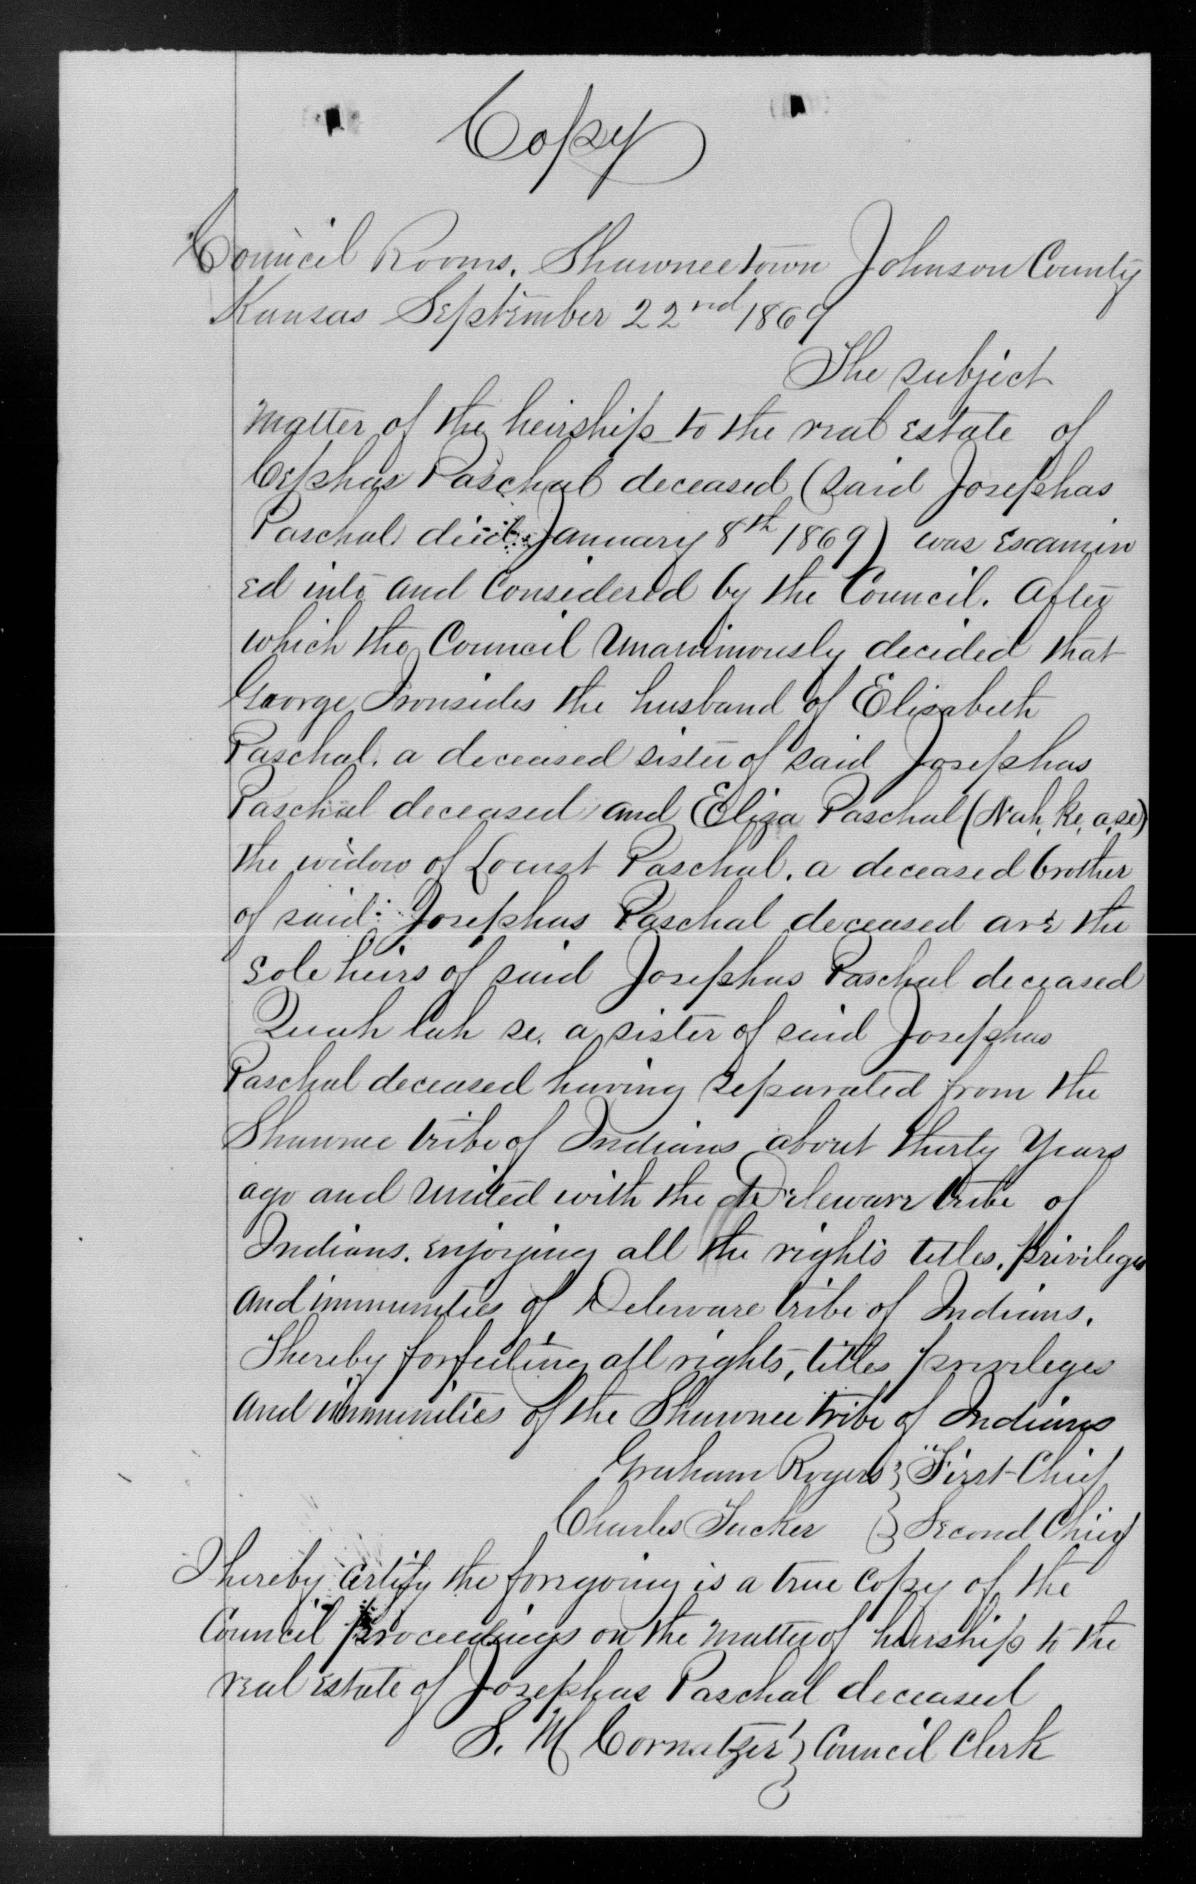 Copy
Council Rooms. Shawneetown Johnson County
Kansas September 22nd 1869
The subject
matter of the heirship to the real estate of
Cephas Paschal deceased (said Josephas
Paschal died January 8th 1869) was examin
ed into and considered by the Council. After
which the Council unanimously decided that
George Ironsides the husband of Elisabeth
Paschal. a deceased sister of said Josephus
Paschal deceased and Eliza Paschal (Nah, ke, a, se)
the widow of Locust Paschal. a deceased brother
of said Josephus Paschal deceased are the
sole heirs of said Josephus Paschal deceased
Quah lah se. a sister of said Josephus
Paschal deceased having separated from the
Shawnee tribe of Indians about thirty years
ago and united with the Deleware tribe of
Indians. enjoying all the rights titles, privileges
and immunities of Deleware tribe of Indians.
Thereby forfeiting all rights, titles privileges
and immunities of the Shawnee tribe of Indians
Graham Rogers } First Chief
Charles Tucker } Second Chief
I hereby certify the forregoing is a true copy of the
Council proceedings on the matter of heirship to the
real estate of Josephus Paschal deceased
S. M Cornatzer } Council Clerk